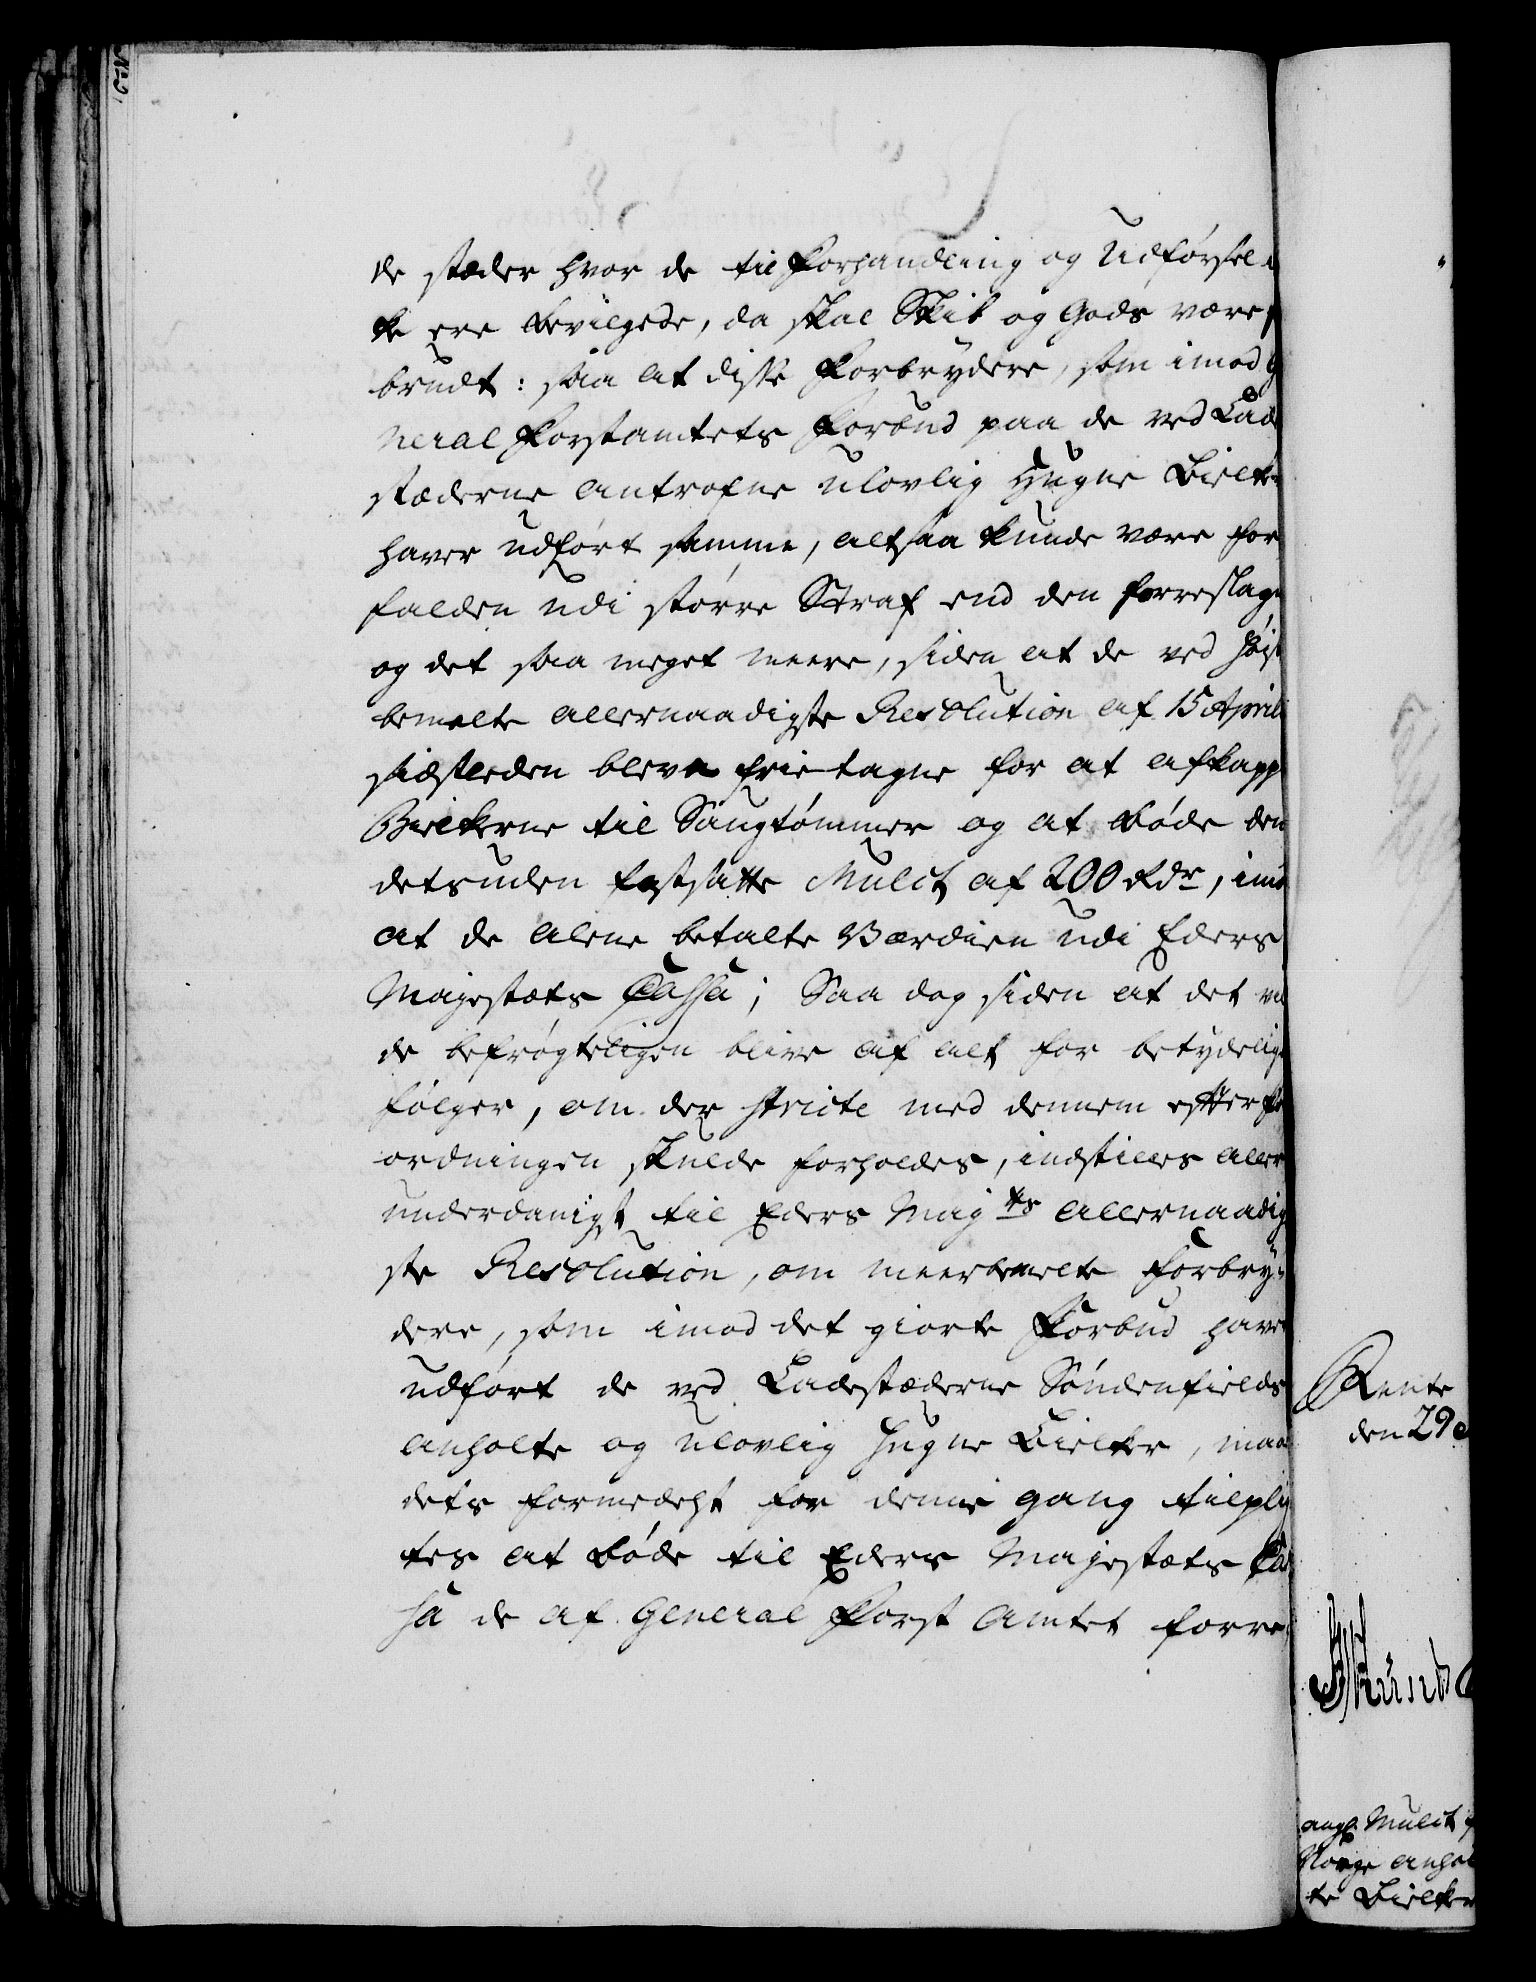 de stæder hvor de til Forhandling og Udførsel i
ke ere bevilgede, da skal Skib og Gods være f
brudt: saa at disse Forbrydere, som imod G
neral Forstamtets Forbud paa de ved Lade
stæderne antrofne ulovlig Hugne Bielker
haver udført samme, altsaa kunde være for
falden udi større Straf end den forreslagn
og det saa meget meere, siden at de ved høist
bemelte allernaadigste Resolution af 15 April
sidstleden bleve frietagne for at afkappe
Bielkerne til Saugtømmer og at bøde den
desuden fastsatte Mulct af 200 Rdr, imod
at de alene betalte Værdien udi Eders
Majestæts Cassa; Saa dog siden at det vil
de befrøgteligen blive af alt for betydelige
følger, om der stricte med dennem efter For
ordningen skulde forholdes, indstilles aller
underdanigst til Eders Majts allernaadig
ste Resolution, om meerbemelte Forbry-
dere, som imod det giorte Forbud haver
udført de ved Ladestæderne Søndenfields
anholte og ulovlig hugne Bielker, maa
dets formedelst for denne gang tilplig
tes at bøde til Eders Majestæts Cas
sa de af General Forst Amtet forre
Rente
den 29
ang. Mulct f
Norge anhol
te Bielker